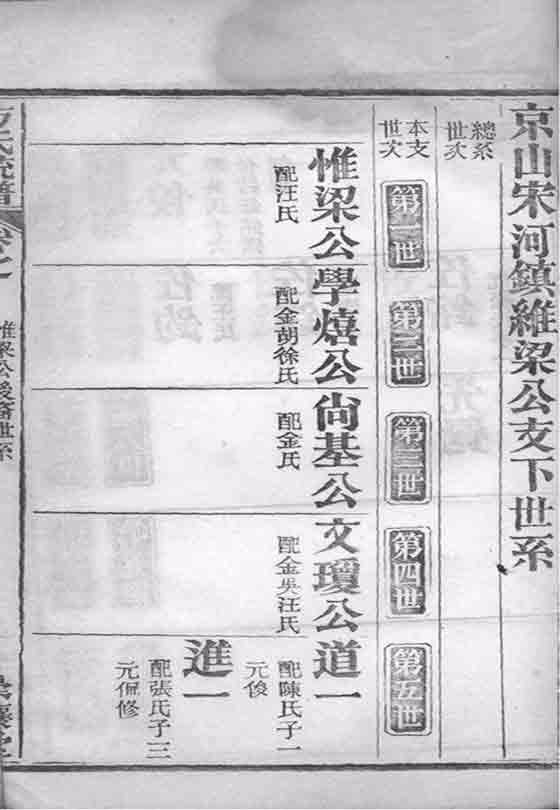 京山宋河鎮維梁公支下世系
總系
世次
本支
世次
第一世
第二世
第三世
第四世
第五世
惟梁公
配汪氏
學熺公
配金胡徐氏
尙基公
配金氏
文瓊公
配金吳汪氏
道一
配陳氏子一
元俊
進一
配張氏子二
元侃修
方氏統譜
卷之
惟梁公後裔世系